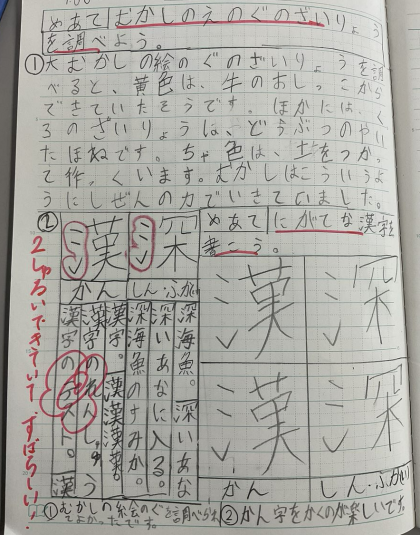 めあて むかしのえのぐのざいりょう
を調べよう。
①大むかしの絵のぐのざいりょうを調
べると、黄色は、牛のおしっこから
できていたそうです。ほかには、く
ろのざいりょうは、どうぶつのやい
たほねです。ちゃ色は、土をつかっ
て作っています。むかしはこういうよ
うにしぜんの力でいきていました。
②
漢 深
かん しん・ふかい
めあて にがてな漢字を
書こう。
深海魚。深いあな
深いあなに入る。
深海魚のすみか。
漢字。漢漢漢漢。
漢字のれんしゅう
漢字のテスト。漢
漢 深
漢 深
かん しん・ふかい
2しゅるいできていて、すばらしい!
①むかしの絵のぐを調べられ
てよかったです。
②かん字をかくのが楽しいです。